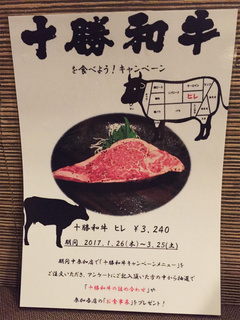 十勝和牛
を食べよう!キャンペーン
ヒレ
十勝和牛 ヒレ ¥3,240
期間 2017.1.26(木)~3.25(土)
期間中参加店で「十勝和牛キャンペーンメニュー」を
ご注文いただき、アンケートにご記入頂いた方の中から抽選で
「十勝和牛の詰め合わせ」や
参加各店の「お食事券」をプレゼント!